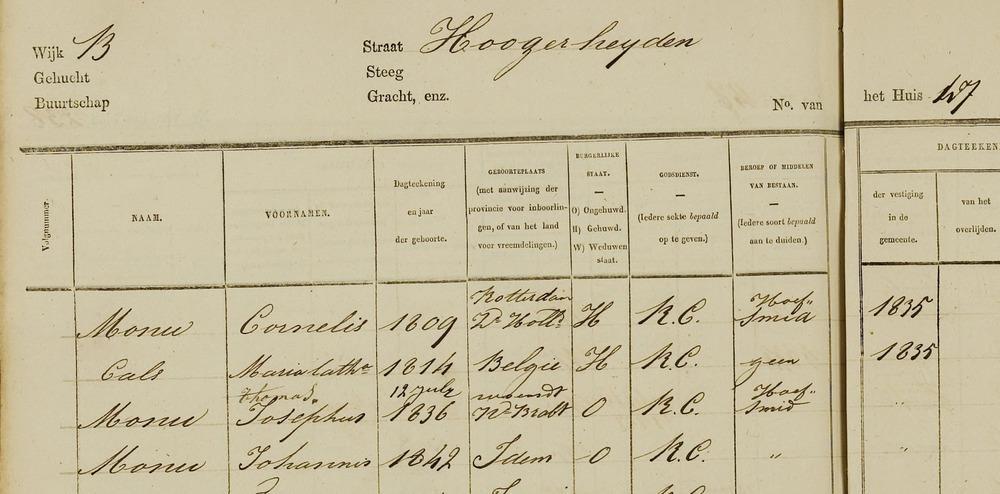 Wijk B
Gehucht
Buurtschap
Straat Hoogerheyden
Steeg
Gracht, enz.
No. van het Huis 127
Volgnummer.
NAAM.
VOORNAMEN.
Dagteekening
en jaar
der geboorte.
GEBOORTEPLAATS
(met aanwijzing der
provincie voor inboorlin-
gen, of van het land
voor vreemdelingen.)
BURGERLIJKE
STAAT.
O) Ongehuwd.
H) Gehuwd.
W) Weduwen
staat.
GODSDIENST.
(Iedere sekte bepaald
op te geven.)
BEROEP OF MIDDELEN
VAN BESTAAN.
(Iedere soort bepaald
aan te duiden.)
DAGTEEKEN
der vestiging
in de
gemeente.
van het
overlijden.
Rotterdam Hoef-
Monu Cornelis 1809 Zd Holld H R.C. Smid 1835
Cals Maria Cathe 1814 Belgie H R.C. geen 1835
Thomas. 12 July woensdt Hoef-
Monu Josephus 1836 Nd Brabt O R.C. Smid "
Monu Johannis 1842 Idem O R.C. " "